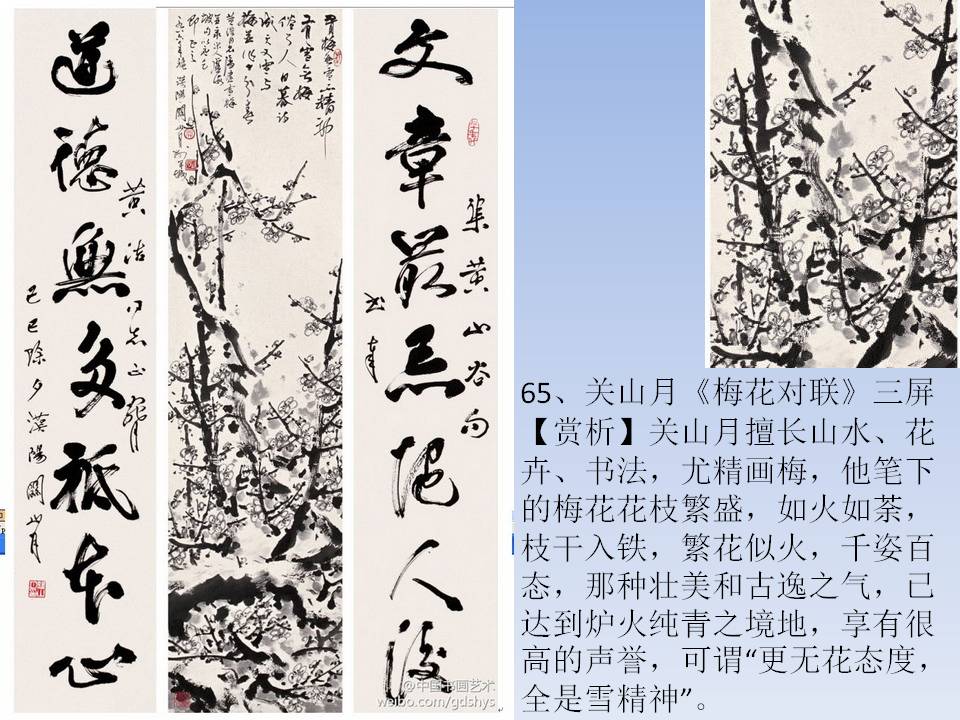 文章最忌随人後
集黄山谷句
有梅無雪不精神
俗了人日暮诗
成天又雪与
梅並作十分春
道德無多祗本心
己巳除夕漠陽關山月
@中国书画艺术
weibo.com/gdshys
65、关山月《梅花对联》三屏
【赏析】关山月擅长山水、花
卉、书法，尤精画梅，他笔下
的梅花花枝繁盛，如火如荼，
枝干入铁，繁花似火，千姿百
态，那种壮美和古逸之气，已
达到炉火纯青之境地，享有很
高的声誉，可谓“更无花态度，
全是雪精神”。